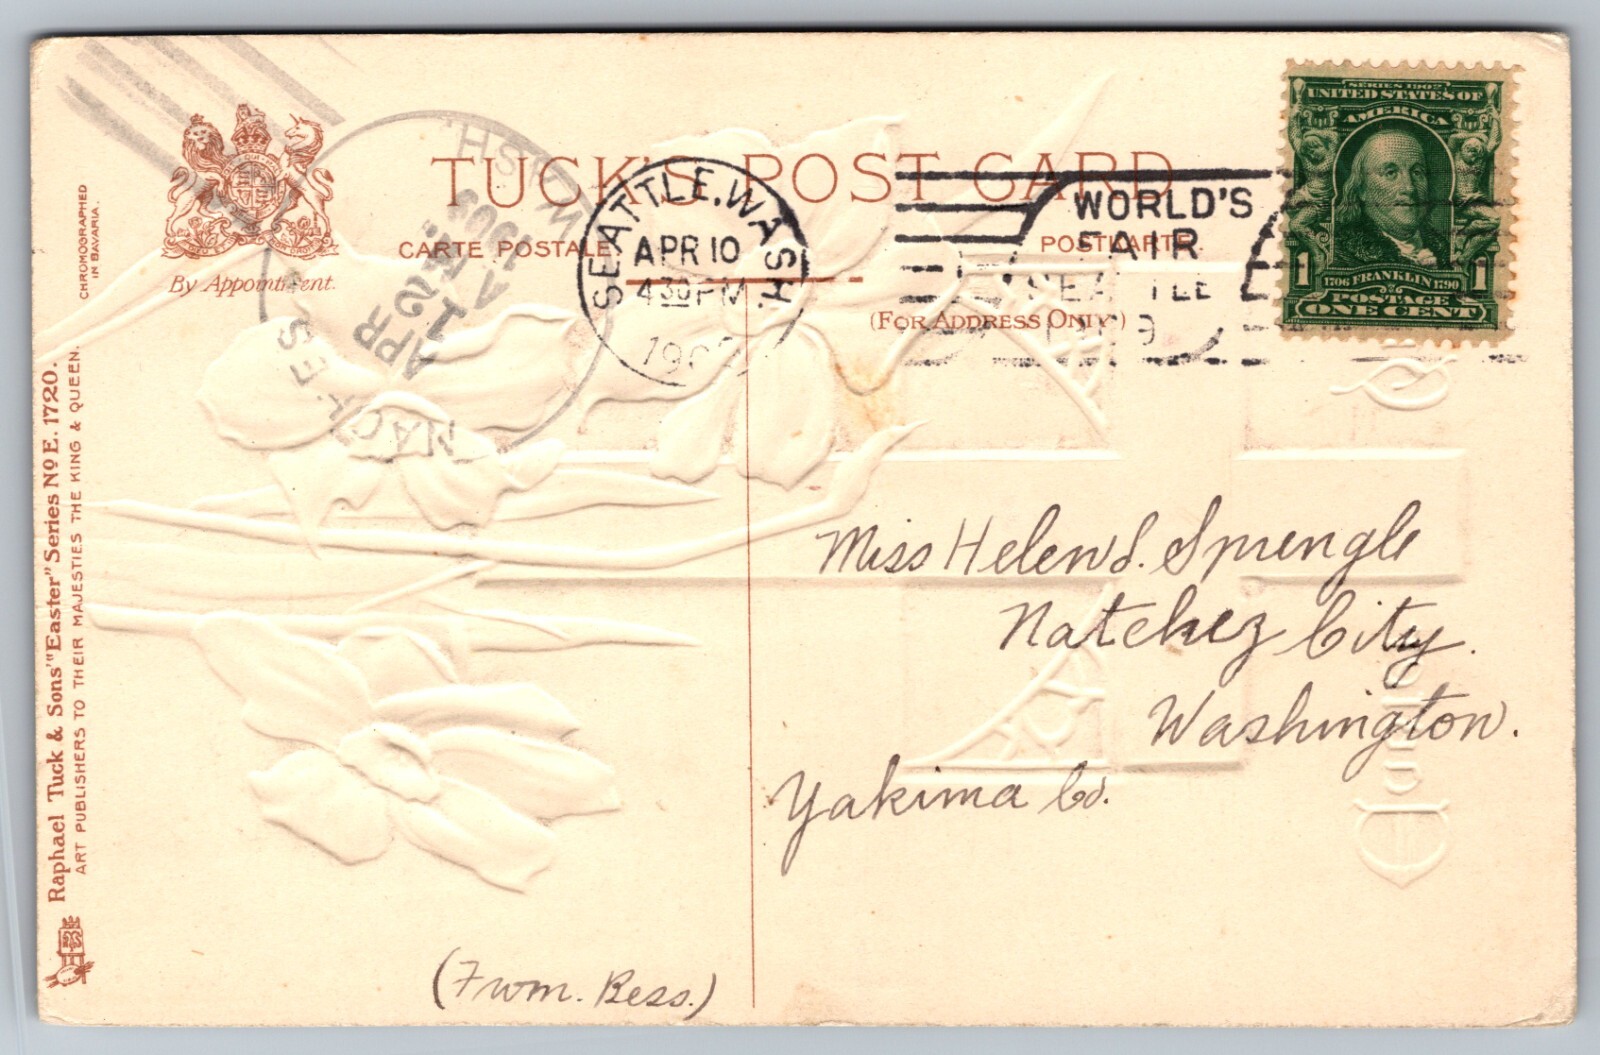 TUCK'S POST CARD
CARTE POSTALE
POSTKARTE.
(FOR ADDRESS ONLY)
By Appointment.
CHROMOGRAPHED
IN BAVARIA.
Raphael Tuck & Sons' "Easter" Series No E. 1720.
ART PUBLISHERS TO THEIR MAJESTIES THE KING & QUEEN.
NACHES WASH.
APR
12
A.M.
1909
SEATTLE, WASH.
APR 10
4 30 PM
WORLD'S
FAIR
SEATTLE
1909
SERIES 1902
UNITED STATES OF
AMERICA
1 1706 FRANKLIN 1790 1
POSTAGE
ONE CENT
Miss Helen S. Sprengle
Natchez City.
Washington.
Yakima Co.
(From. Bess.)